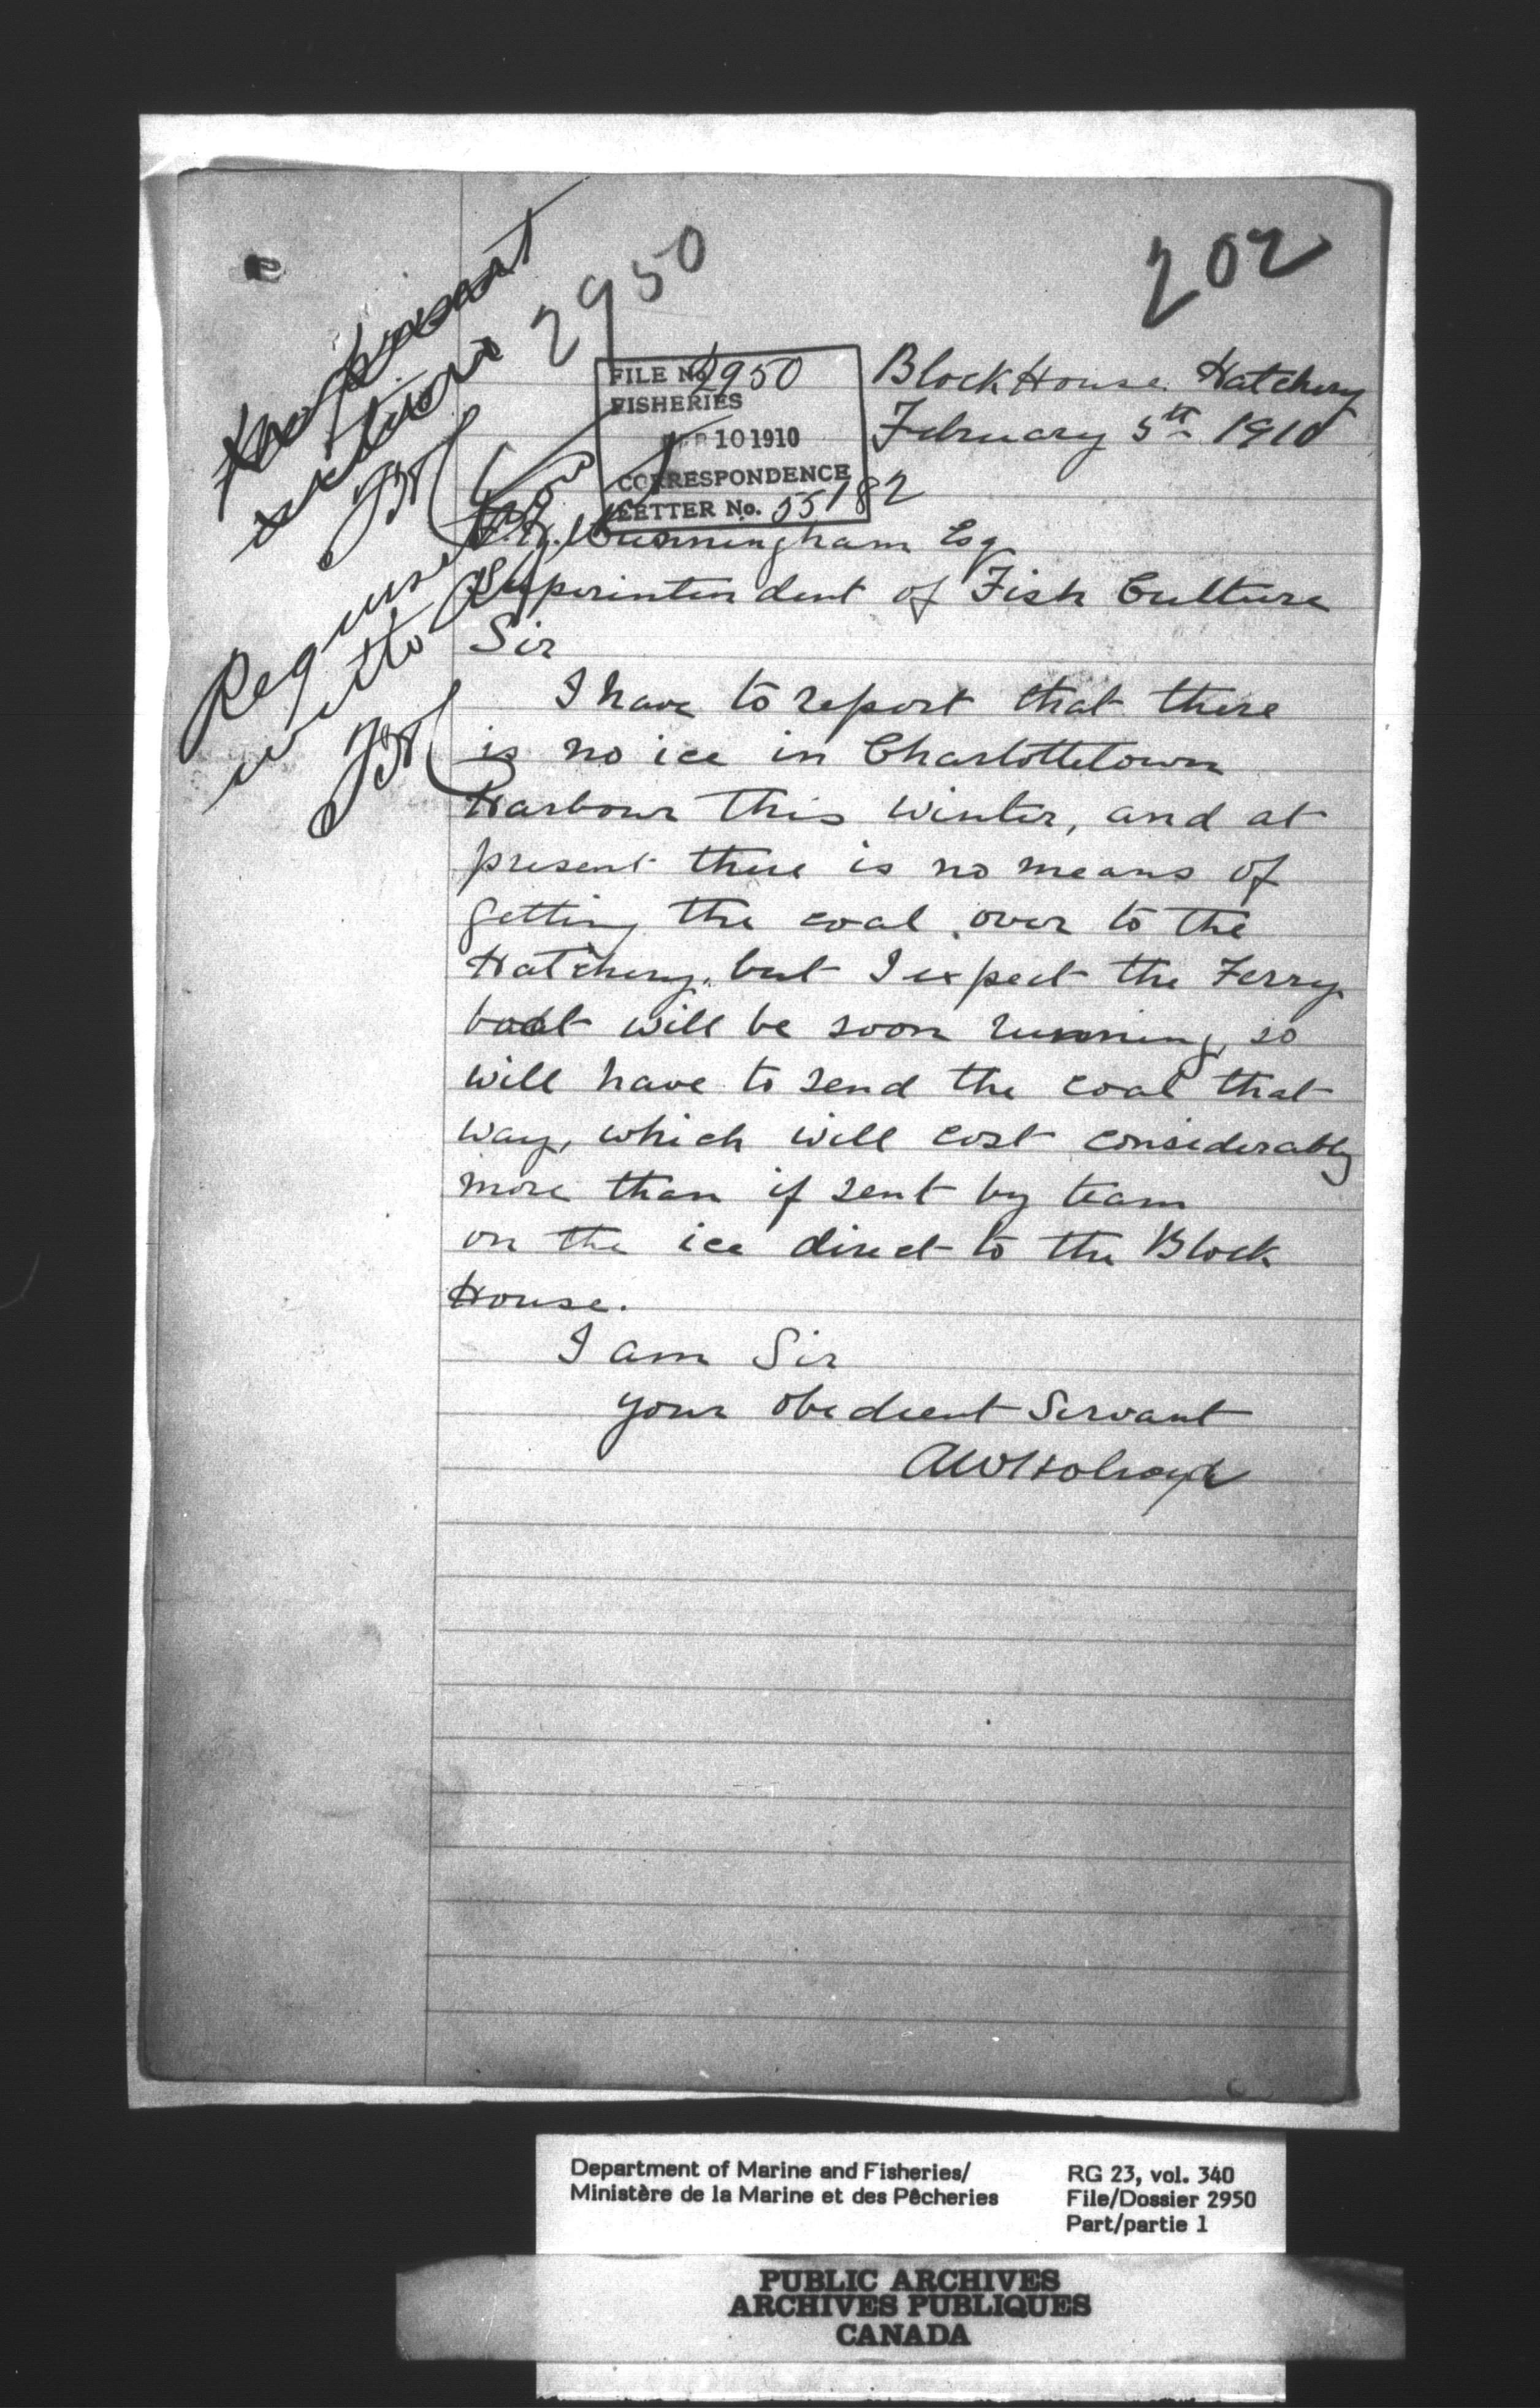 202
2950
FILE No. 2950
FISHERIES
FEB 10 1910
CORRESPONDENCE
LETTER No. 55182
Block House Hatchery
February 5th 1910
No present
action
Cunningham Esq
Superintendent of Fish Culture
Sir
I have to report that there
is no ice in Charlottetown
Harbour this winter, and at
present there is no means of
getting the coal over to the
Hatchery, but I expect the Ferry
boat will be soon running, so
will have to send the coal that
way, which will cost considerably
more than if sent by team
on the ice direct to the Block
House.
I am Sir
your obedient Servant
AW Holroyd
Department of Marine and Fisheries/
Ministère de la Marine et des Pêcheries
RG 23, vol. 340
File/Dossier 2950
Part/partie 1
PUBLIC ARCHIVES
ARCHIVES PUBLIQUES
CANADA